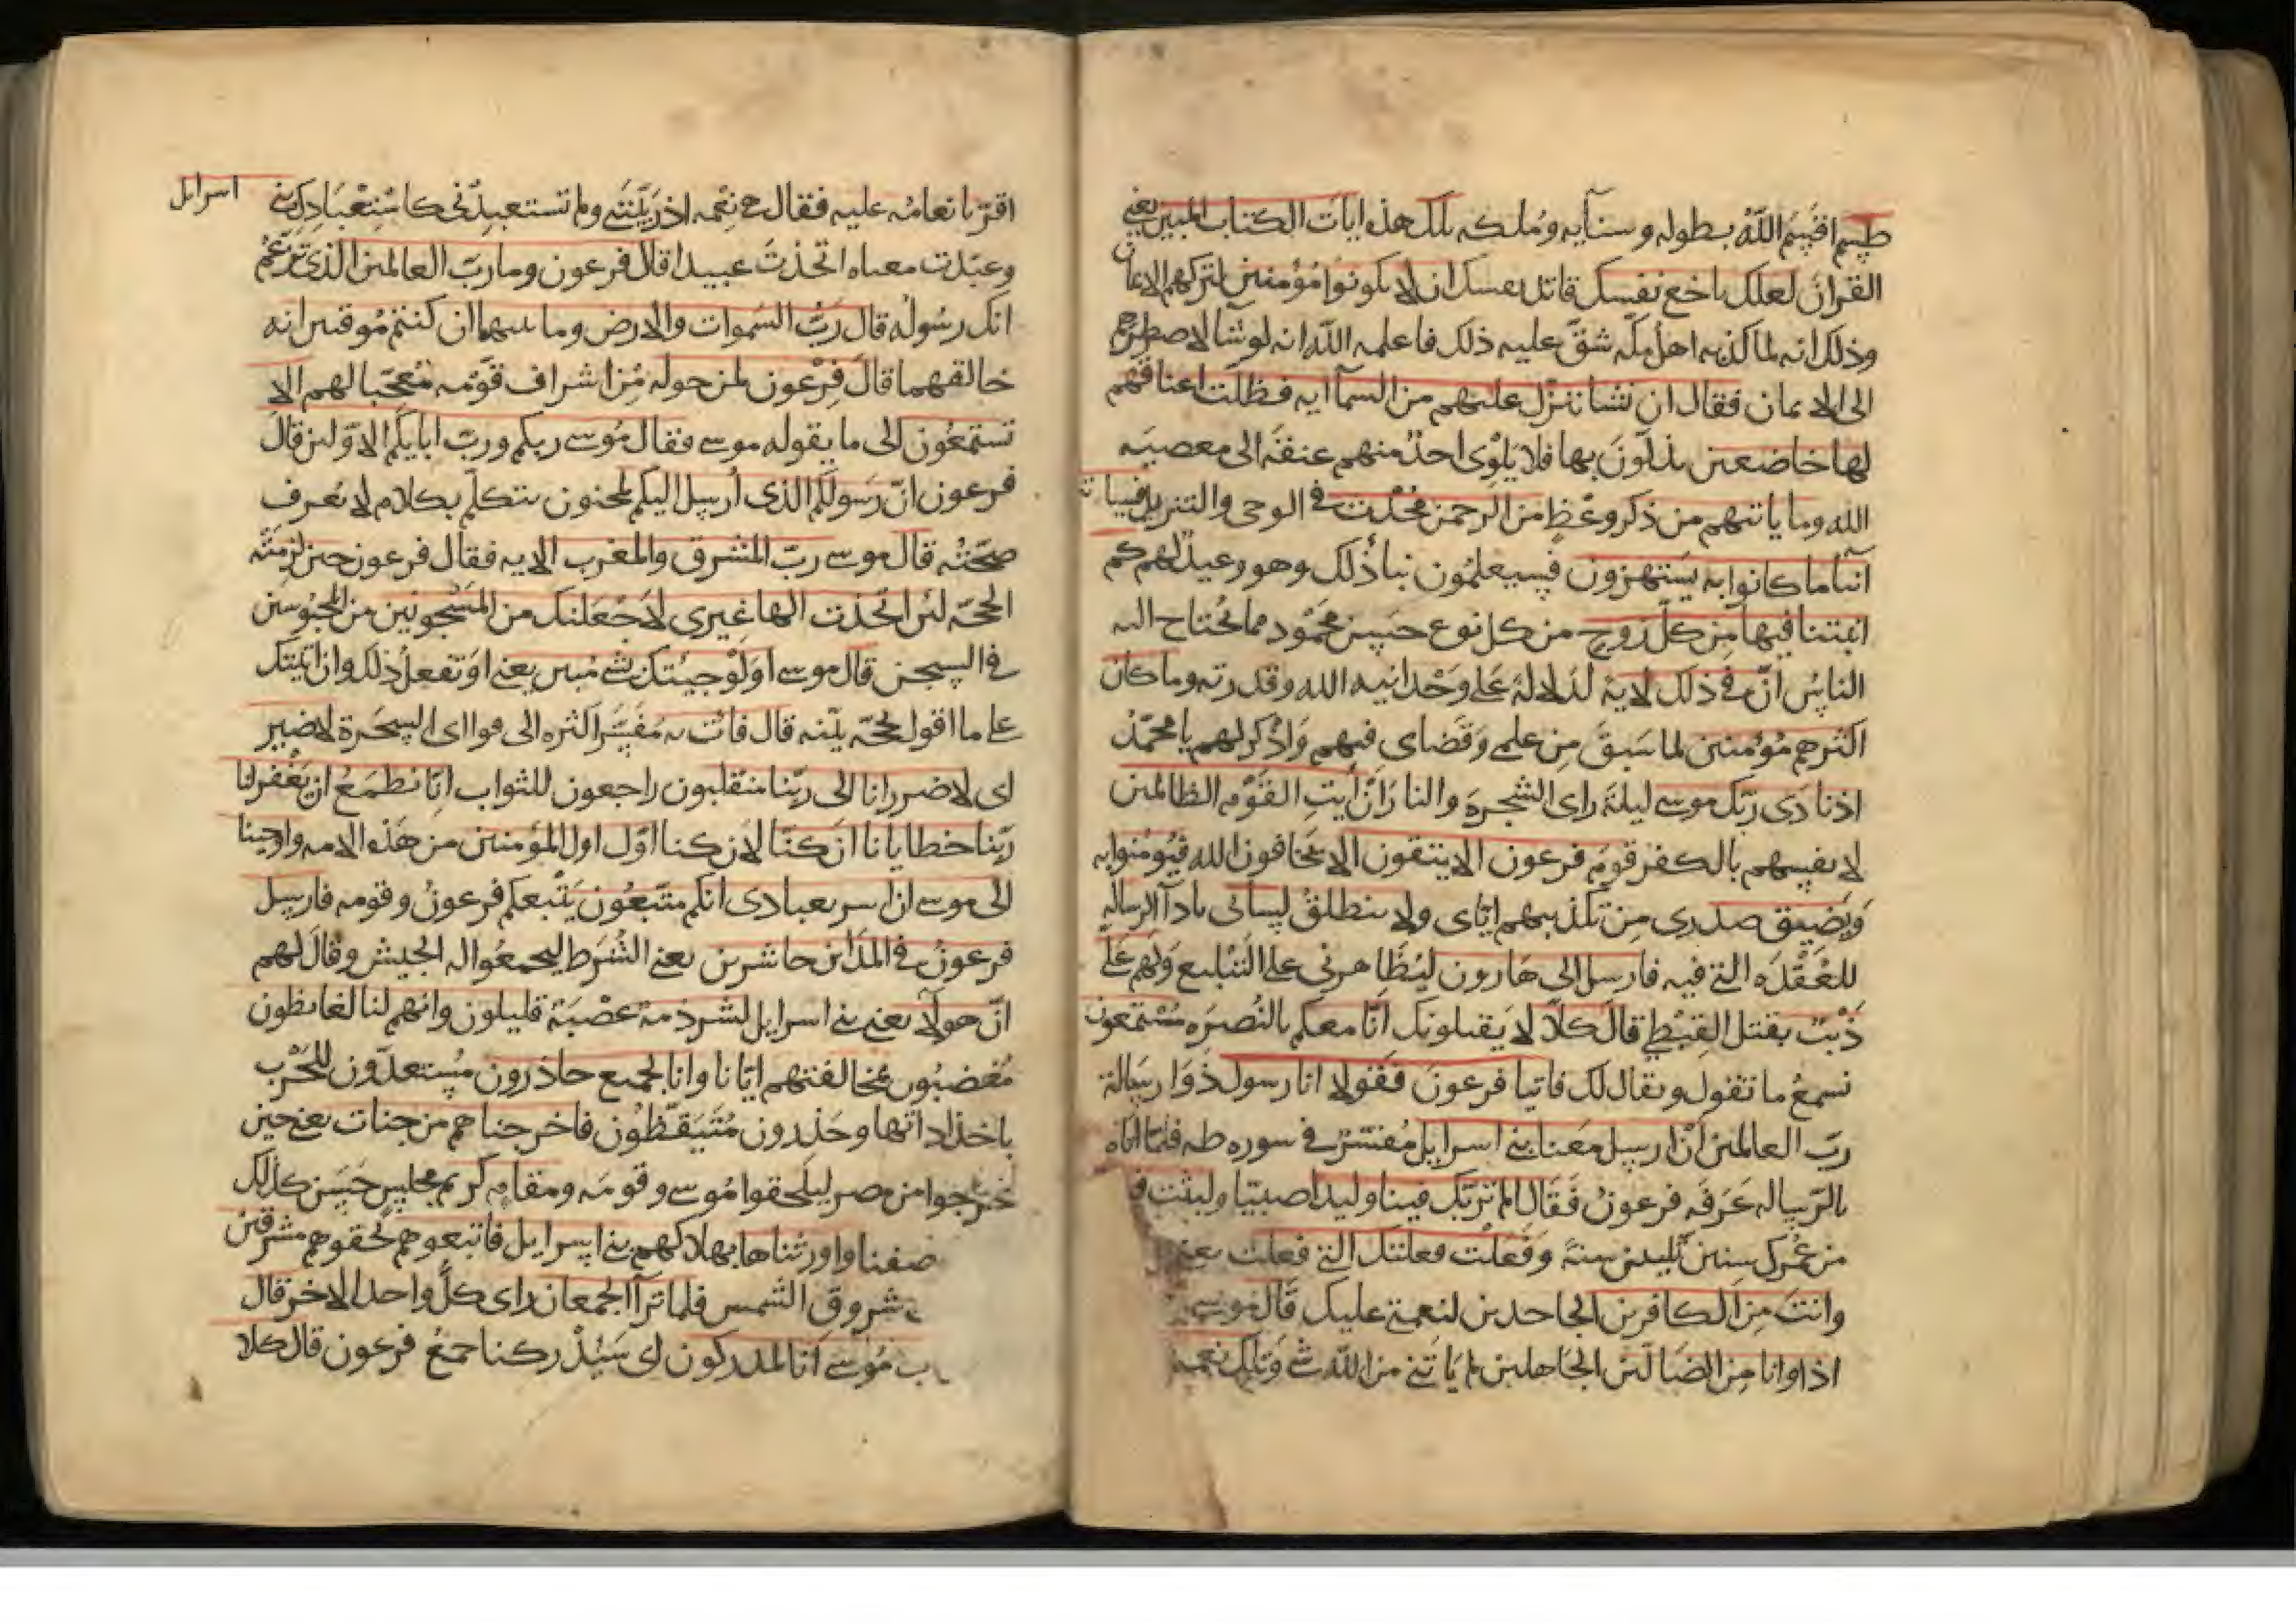 طسم اقسم الله بطوله وسنايه وملكه تلك هذه ايات الكتاب المبين يعني
القران لعلك باخع نفسك قاتل نفسك ان لا يكونوا مؤمنين لتركهم الايمان
وذلك انه لما كذبه اهل مكه شق عليه ذلك فاعلمه الله انه لو شا لاضطرهم
الى الايمان فقال ان نشا ننزل عليهم من السمآ ايه فظلت اعناقهم
لها خاضعين يذلون بها فلا يلوى احد منهم عنقه الى معصيه
الله وما ياتيهم من ذكر وعظ من الرحمن محدث في الوحى والتنزيل فسيا تيهم
انبآ ما كانوا به يستهزون فسيعلمون نبا ذلك وهو وعيد لهم كم
انبتنا فيها من كل زوج من كل نوع حسن محمود مما يحتاج اليه
الناس ان في ذلك لاية لدلالة على وحدانيه الله وقدرته وما كان
اكثرهم مؤمنين لما سبق من علمي وقضاى فيهم واذكر لهم يا محمد
اذ نادى ربك موسى ليلة راى الشجرة والنار ان أيت القوم الظالمين
لانفسهم بالكفر قوم فرعون الا يتقون الا يخافون الله فيؤمنوا به
ويضيق صدرى من تكذيبهم اياى ولا ينطلق لسانى بادآ الرساله
للعقده التي فيه فارسل الى هارون ليظاهرنى على التبليغ ولهم علي
ذنب بقتل القبطي قال كلا لا يقتلونك انا معكم بالنصره مستمعون
نسمع ما تقول ويقال لك فاتيا فرعون فقولا انا رسول ذوا رسالة
رب العالمين ان ارسل معنا بني اسرايل مفسر في سوره طه فلما اتاه
بالرساله عرفه فرعون فقال الم نربك فينا وليدا صبيا ولبثت ف
من عمرك سنين ثلثين سنة وفعلت فعلتك التي فعلت يعني
وانت من الكافرين الجاحدين لنعمتي عليك قال موسى
اذا وانا من الضالين الجاهلين لم ياتني من الله شي وتلك نعمه
اقر بانعامه عليه فقال هي نعمه اذ ربيتني ولم تستعبدني كاستعبادك بني اسرايل
وعبدت معناه اتخذت عبيدا قال فرعون وما رب العالمين الذى تزعم
انك رسوله قال رب السموات والارض وما بينهما ان كنتم موقنين انه
خالقهما قال فرعون لمن حوله من اشراف قومه معجبا لهم الا
تستمعون الى ما يقوله موسى فقال موسى ربكم ورب ابايكم الاولين قال
فرعون ان رسولكم الذى أرسل اليكم لمجنون يتكلم بكلام لا يعرف
صحته قال موسى رب المشرق والمغرب الايه فقال فرعون حين لزمته
الحجه لئن اتخذت الها غيرى لاجعلنك من المسجونين من المحبوسين
في السجن قال موسى اولو جيتك بشي مبين يعني اوتفعل ذلك وان اتيتك
على ما اقول بحجه بينه قال فات به مفسر اكثره الى قوله اى السحرة لا ضير
اى لا ضرر انا الى ربنا منقلبون راجعون للثواب انا نطمع ان يغفر لنا
ربنا خطايانا ان كنا لان كنا اول اول المؤمنين من هذه الامه واوحينا
الى موسى ان اسر بعبادى انكم متبعون يتبعكم فرعون وقومه فارسل
فرعون في المداين حاشرين يعني الشرط ليجمعوا له الجيش وقال لهم
ان هولآ يعني بني اسرايل لشرذمة عصبة قليلون وانهم لنا لغايظون
مغضبون بمخالفتهم ايانا وانا لجميع حاذرون مستعدون للحرب
باخذ اداتها وحذرون متيقظون فاخرجناهم من جنات يعني حين
خرجوا من مصر ليلحقوا موسى وقومه ومقام كريم مجلس حسن كذلك
صفنا واورثناها بهلاكهم بني اسرايل فاتبعوهم لحقوهم مشرقين
شروق الشمس فلما ترآا الجمعان راى كل واحد الاخر قال
موسى انا لمدركون اى سيدركنا جمع فرعون قال كلا